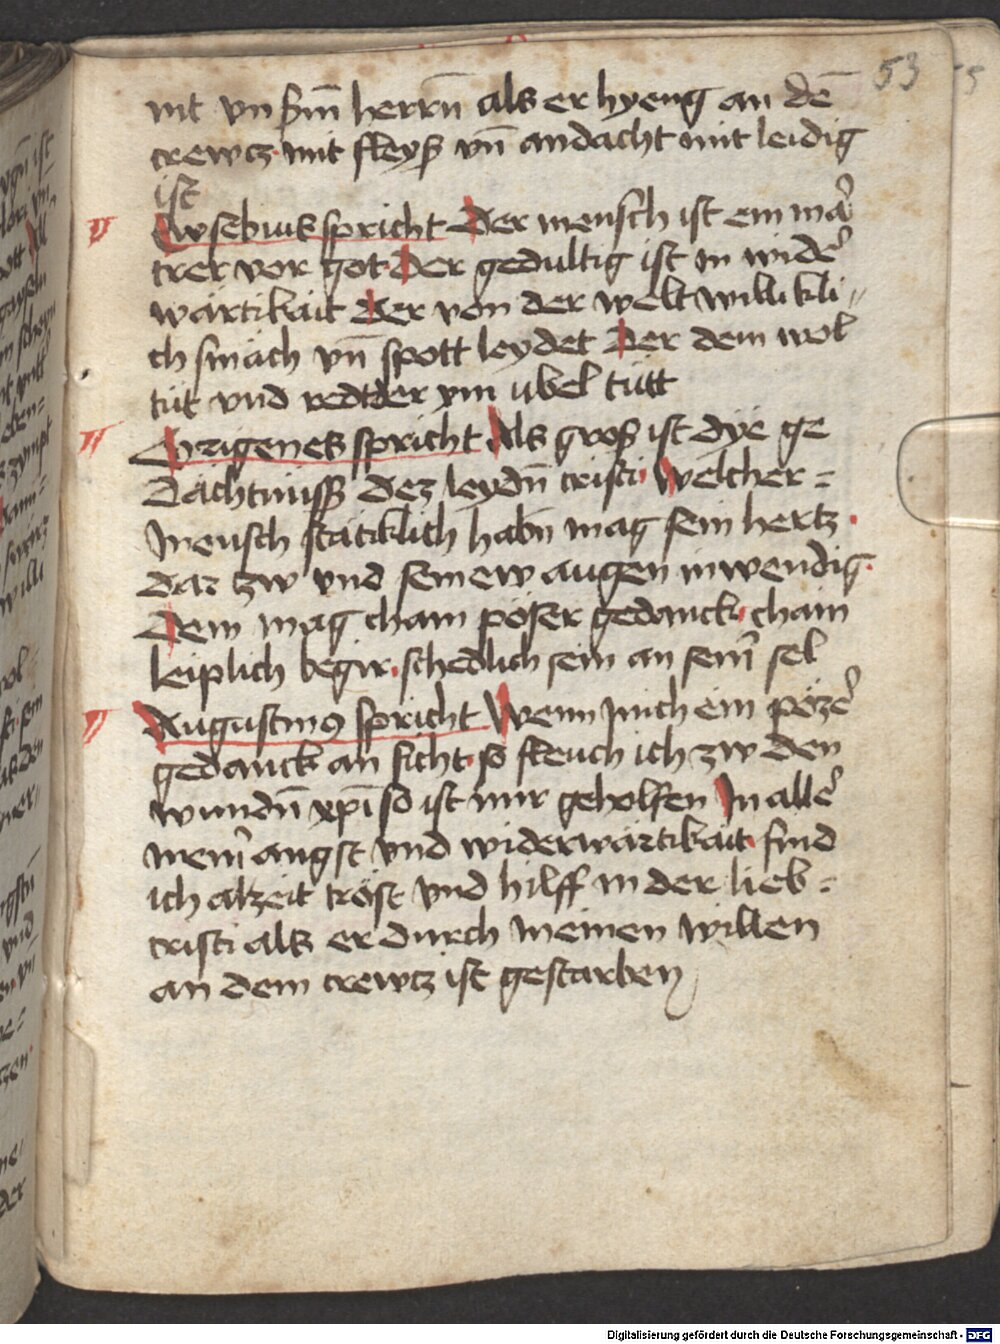 53
nit vn̄ sein̄ herrn̄ als er hyeng an dē
crewcz mit fleyß vn̄ andacht mit leidig
ist
Ewsebius spricht Der mensch ist ein mar
trer vor got Der gedultig ist in wider
wartikait Der von der welt willikli
ch smach vn̄ spott leydet Der dem wol
tut vnd redt der ym ubel tutt
Origenes spricht Als groß ist dye ge
dachtnuss dez leydn̄ cristi welcher =
mensch statiklich habn̄ mag sein hertz
dar zw vnd sein ew augen inwendig
Dem mag chain pöser gedanck chain
leiplich begir schedlich sein an sein̄ sel
Augustin9 spricht Wenn mich ein pözer
gedanck an ficht so fleuch ich zw den
wundn̄ xp̄i so ist mir geholfen In aller
mein̄ angst vnd widerwartikait find
ich alzeit tröst vnd hilff in der lieb =
cristi als er durch meinen willen
an dem crewcz ist gestarben
Digitalisierung gefördert durch die Deutsche Forschungsgemeinschaft - DFG